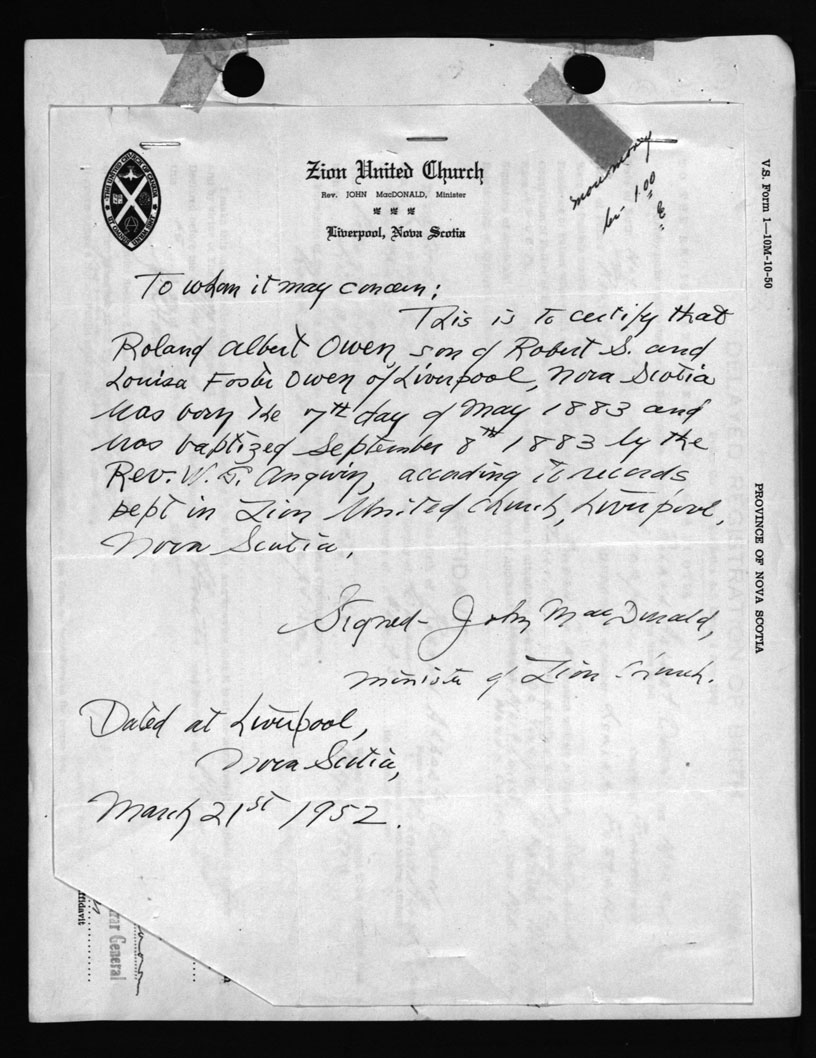 Zion United Church
Rev. JOHN MacDONALD, Minister
Liverpool, Nova Scotia
money
1.00
To whom it may concern:
This is to certify that
Roland Albert Owen, son of Robert S. and
Louisa Foster Owen of Liverpool, Nova Scotia
was born the 7th day of May 1883 and
was baptized September 8th 1883 by the
Rev. W. Angwin, according to records
kept in Zion United Church, Liverpool,
Nova Scotia.
Signed- John MacDonald,
Minister of Zion Church.
Dated at Liverpool,
Nova Scotia,
March 21st 1952.
V.S. Form 1—10M-10-50
PROVINCE OF NOVA SCOTIA
rar General
ffidavit